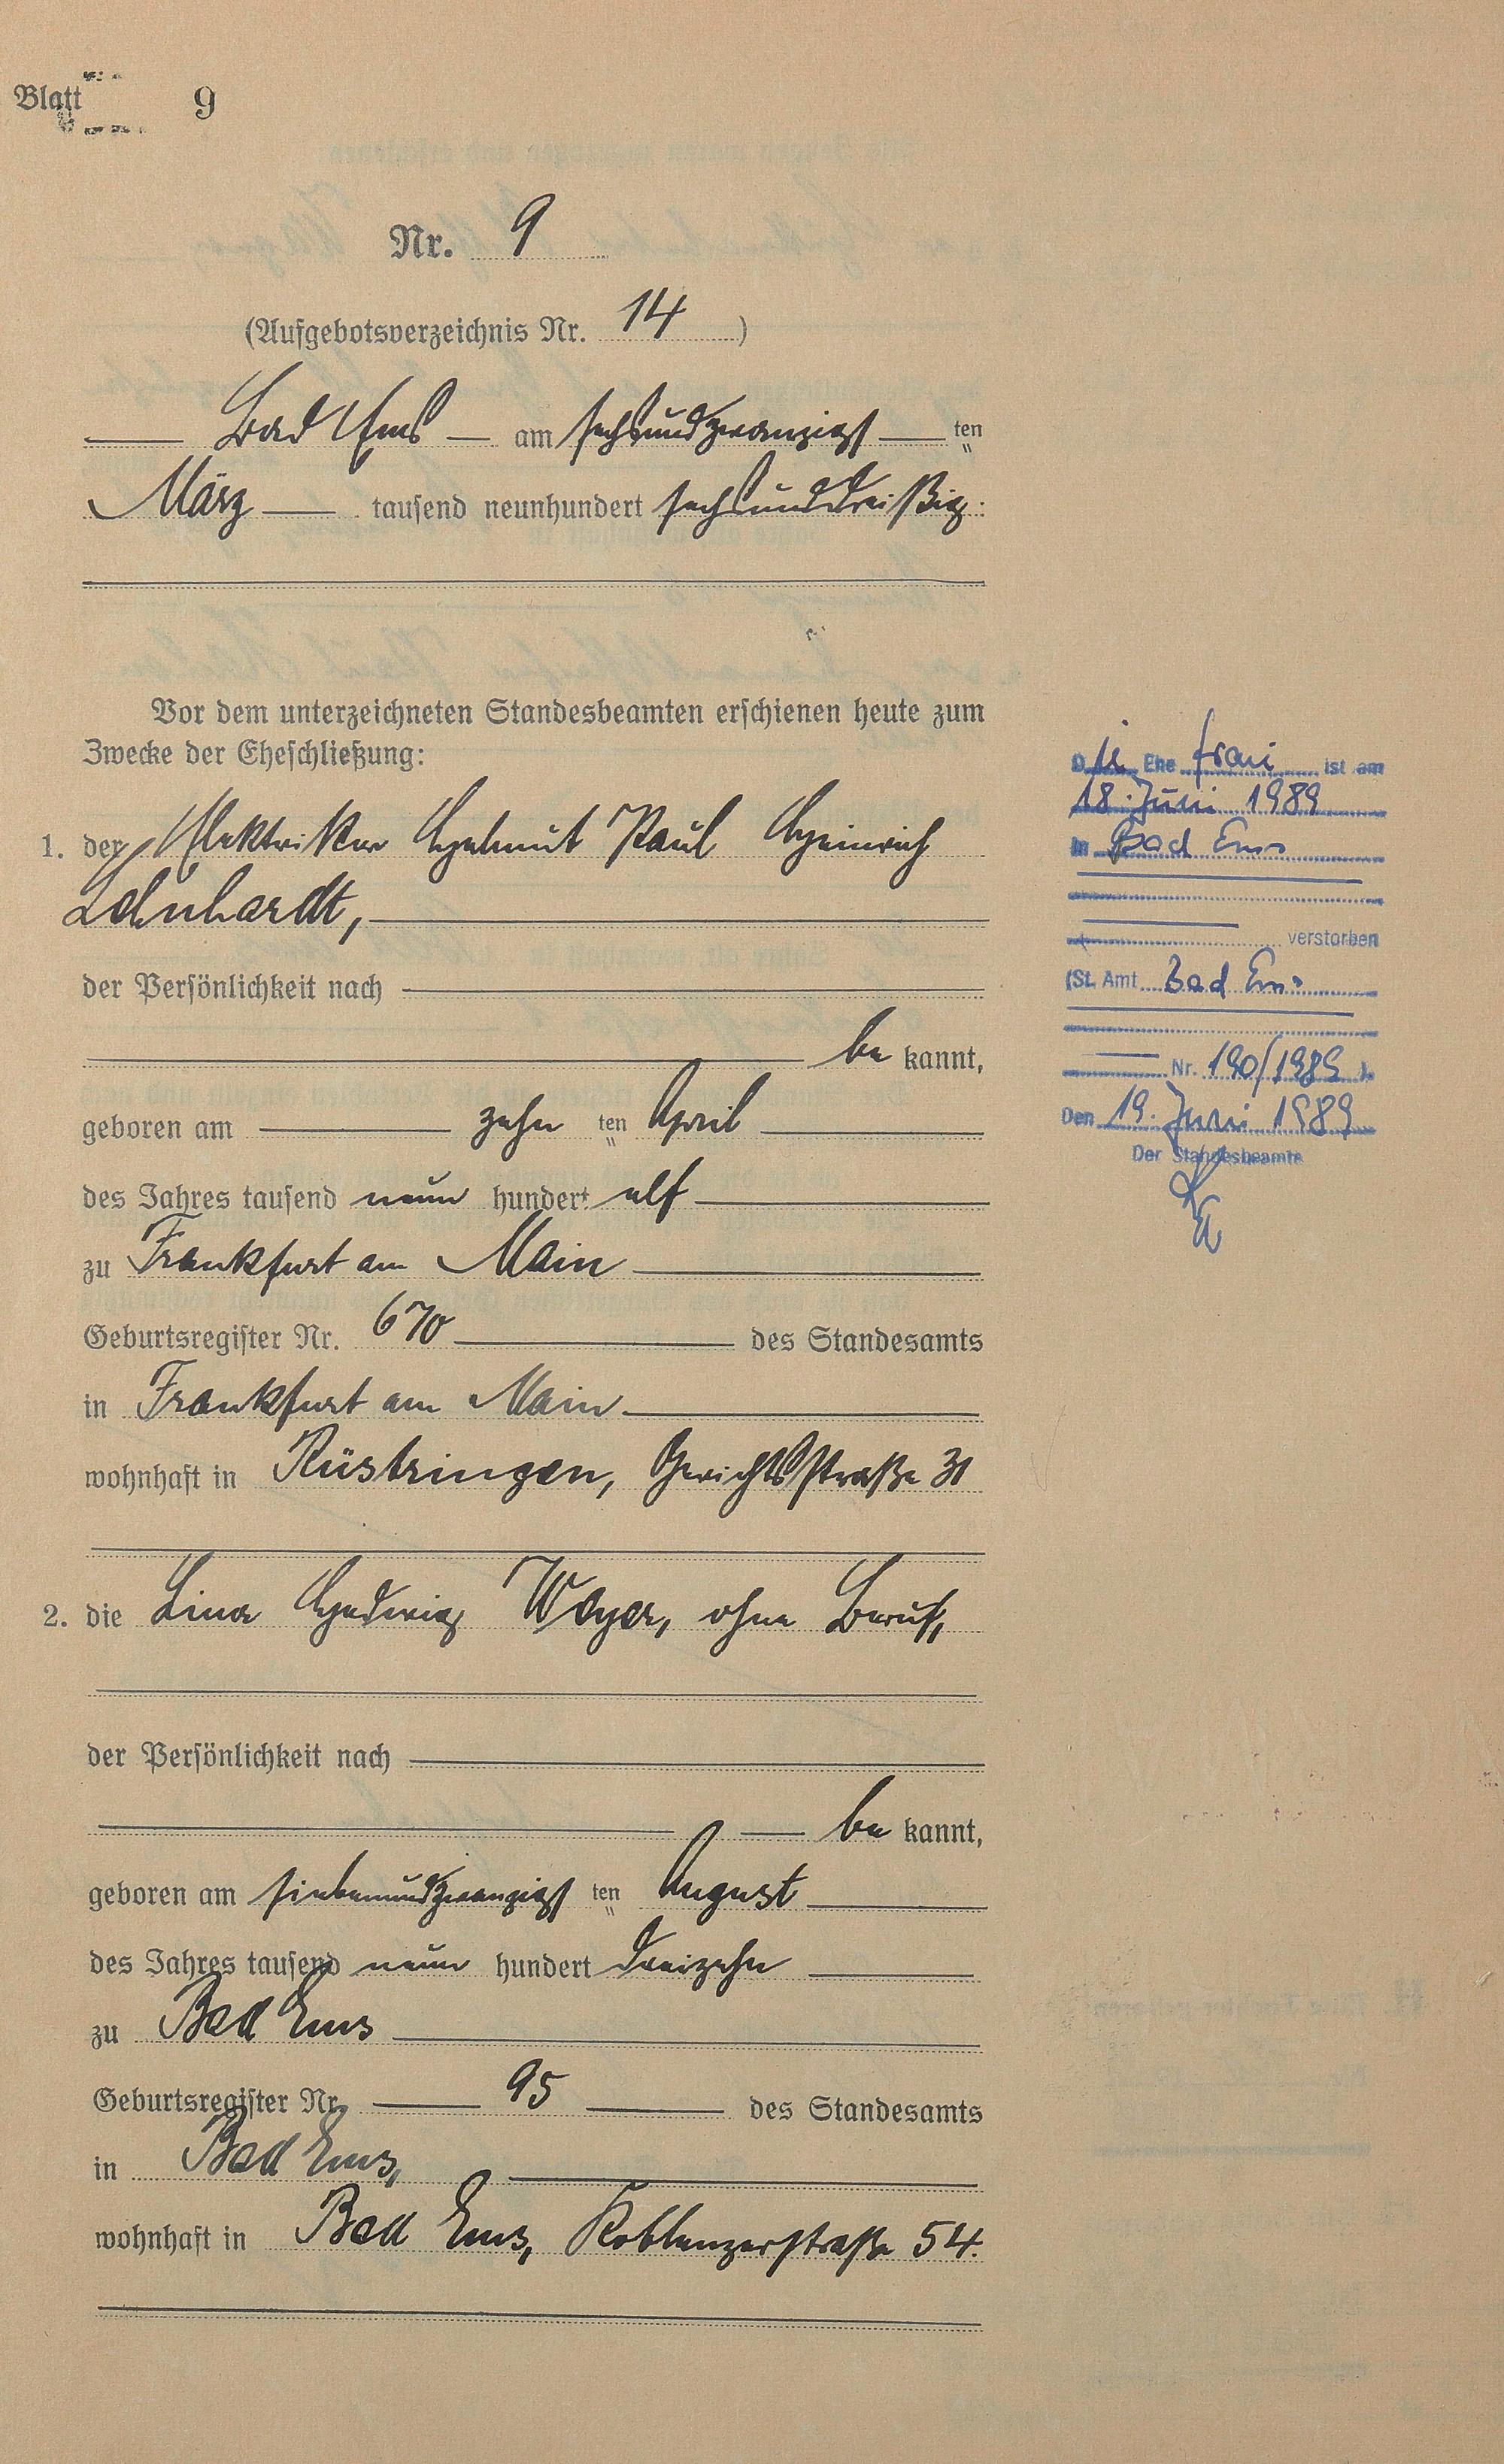 Blatt 9
Nr. 9
(Aufgebotsverzeichnis Nr. 14)
Bad Ems am sechsundzwanzigsten
März tausend neunhundert sechsunddreißig.
Vor dem unterzeichneten Standesbeamten erschienen heute zum
Zwecke der Eheschließung:
1. der Elektriker Helmut Paul Heinrich
Lehnhardt,
der Persönlichkeit nach
be kannt,
geboren am zehn ten April
des Jahres tausend neun hundert elf
zu Frankfurt am Main
Geburtsregister Nr. 670 des Standesamts
in Frankfurt am Main
wohnhaft in Rüstringen, Gerichtsstraße 31
2. die Lina Hedwig Weyer, ohne Beruf,
der Persönlichkeit nach
be kannt,
geboren am siebenundzwanzigsten August
des Jahres tausend neun hundert dreizehn
zu Bad Ems
Geburtsregister Nr. 95 des Standesamts
in Bad Ems,
wohnhaft in Bad Ems, Koblenzerstraße 54.
Die Ehe frau ist am
18. Juni 1989
in Bad Ems
verstorben
(St. Amt Bad Ems
Nr. 190/1989 ).
Den 19. Juni 1989
Der Standesbeamte